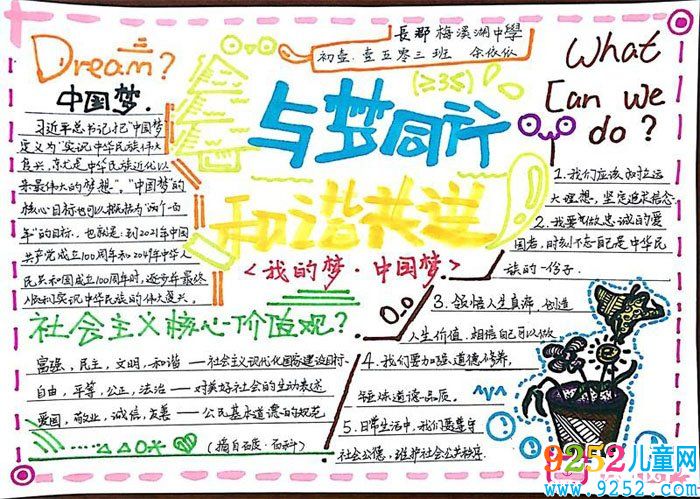 長郡梅溪湖中學
初壹.壹五零三班 余依依
Dream?
中国梦.
习近平总书记把“中国梦”
定义为“实现中华民族伟大
复兴，就是中华民族近代以
来最伟大的梦想”，“中国梦”的
核心目标也可以概括为“两个一百
年”的目标，也就是：到2021年中国
共产党成立100周年和2049年中华人
民共和国成立100周年时，逐步并最终
顺利实现中华民族的伟大复兴。
(≥3≤)
与梦同行
和谐共进
<我的梦·中国梦>
What
Can we
do?
1.我们应该树立远
大理想，坚定追求信念.
2.我要做忠诚的爱
国者，时刻不忘自己是中华民
族的一份子.
3.领悟人生真谛，创造
人生价值，相信自己可以做.
4.我们要加强道德修养，
锤炼道德品质。
5.日常生活中，我们要遵守
社会公德，维护社会公共秩序.
社会主义核心价值观?
富强，民主，文明，和谐——社会主义现代化国家建设目标.
自由，平等，公正，法治——对美好社会的生动表述
爱国，敬业，诚信，友善——公民基本道德的规范
(摘自百度·百科)
9252儿童网
www.9252.com